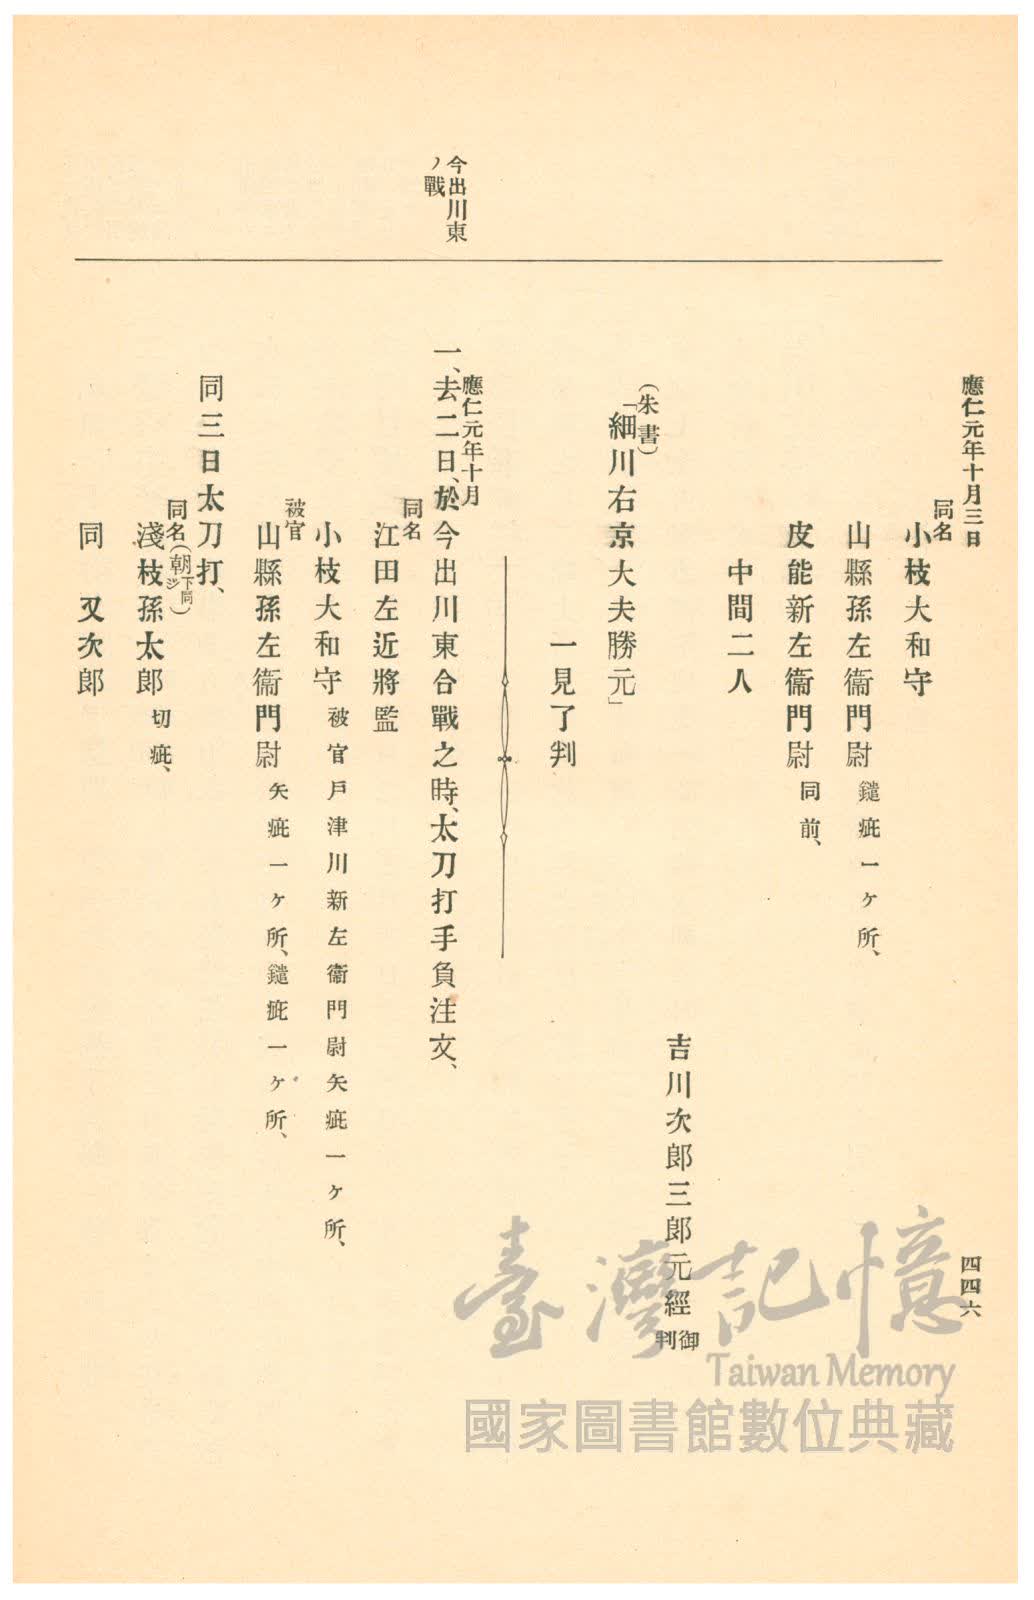 應仁元年十月三日
四四六
同名
小枝大和守
山縣孫左衞門尉 鑓疵一ヶ所、
皮能新左衞門尉 同前、
中間二人
吉川次郎三郎元經 御判
(朱書)
「細川右京大夫勝元」
一見了判
今出川東
ノ戰
應仁元年十月
一、去二日、於今出川東合戰之時、太刀打手負注文、
同名
江田左近將監
小枝大和守 被官戸津川新左衞門尉矢疵一ヶ所、
被官
山縣孫左衞門尉 矢疵一ヶ所、鑓疵一ヶ所、
同三日太刀打、
同名(朝下同ジ)
淺枝孫太郎 切疵、
同 又次郎
臺灣記憶
Taiwan Memory
國家圖書館數位典藏